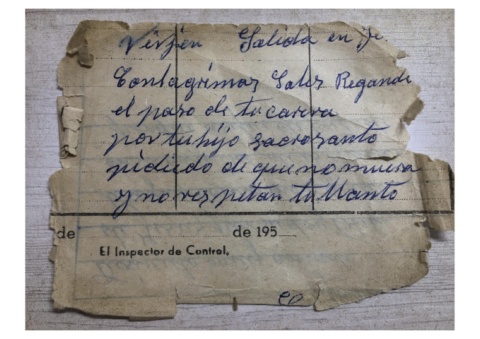 Virjen Salida en
Con lagrimas Sales Regando
el paso de tu carera
por tu hijo sacrosanto
pidiedo de que no muera
y no respetan tu llanto
de de 195
El Inspector de Control,